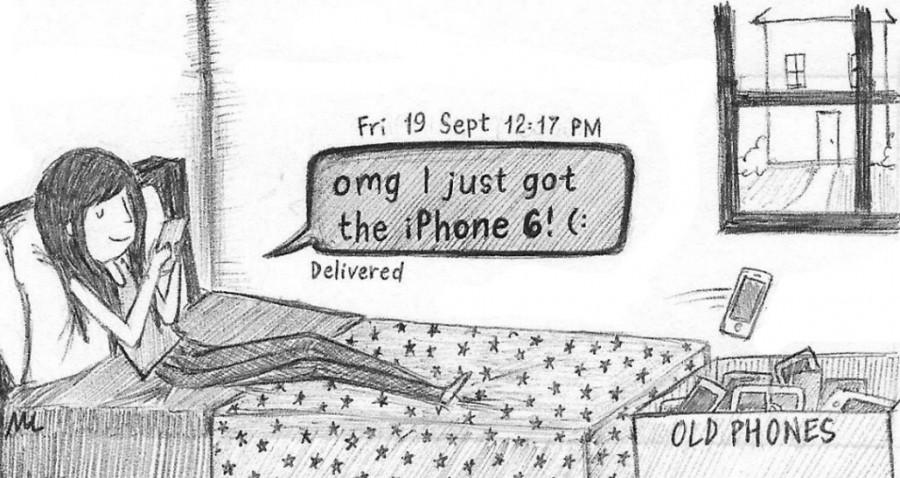 Fri 19 Sept 12:17 PM
omg I just got
the iPhone 6! (:
Delivered
OLD PHONES